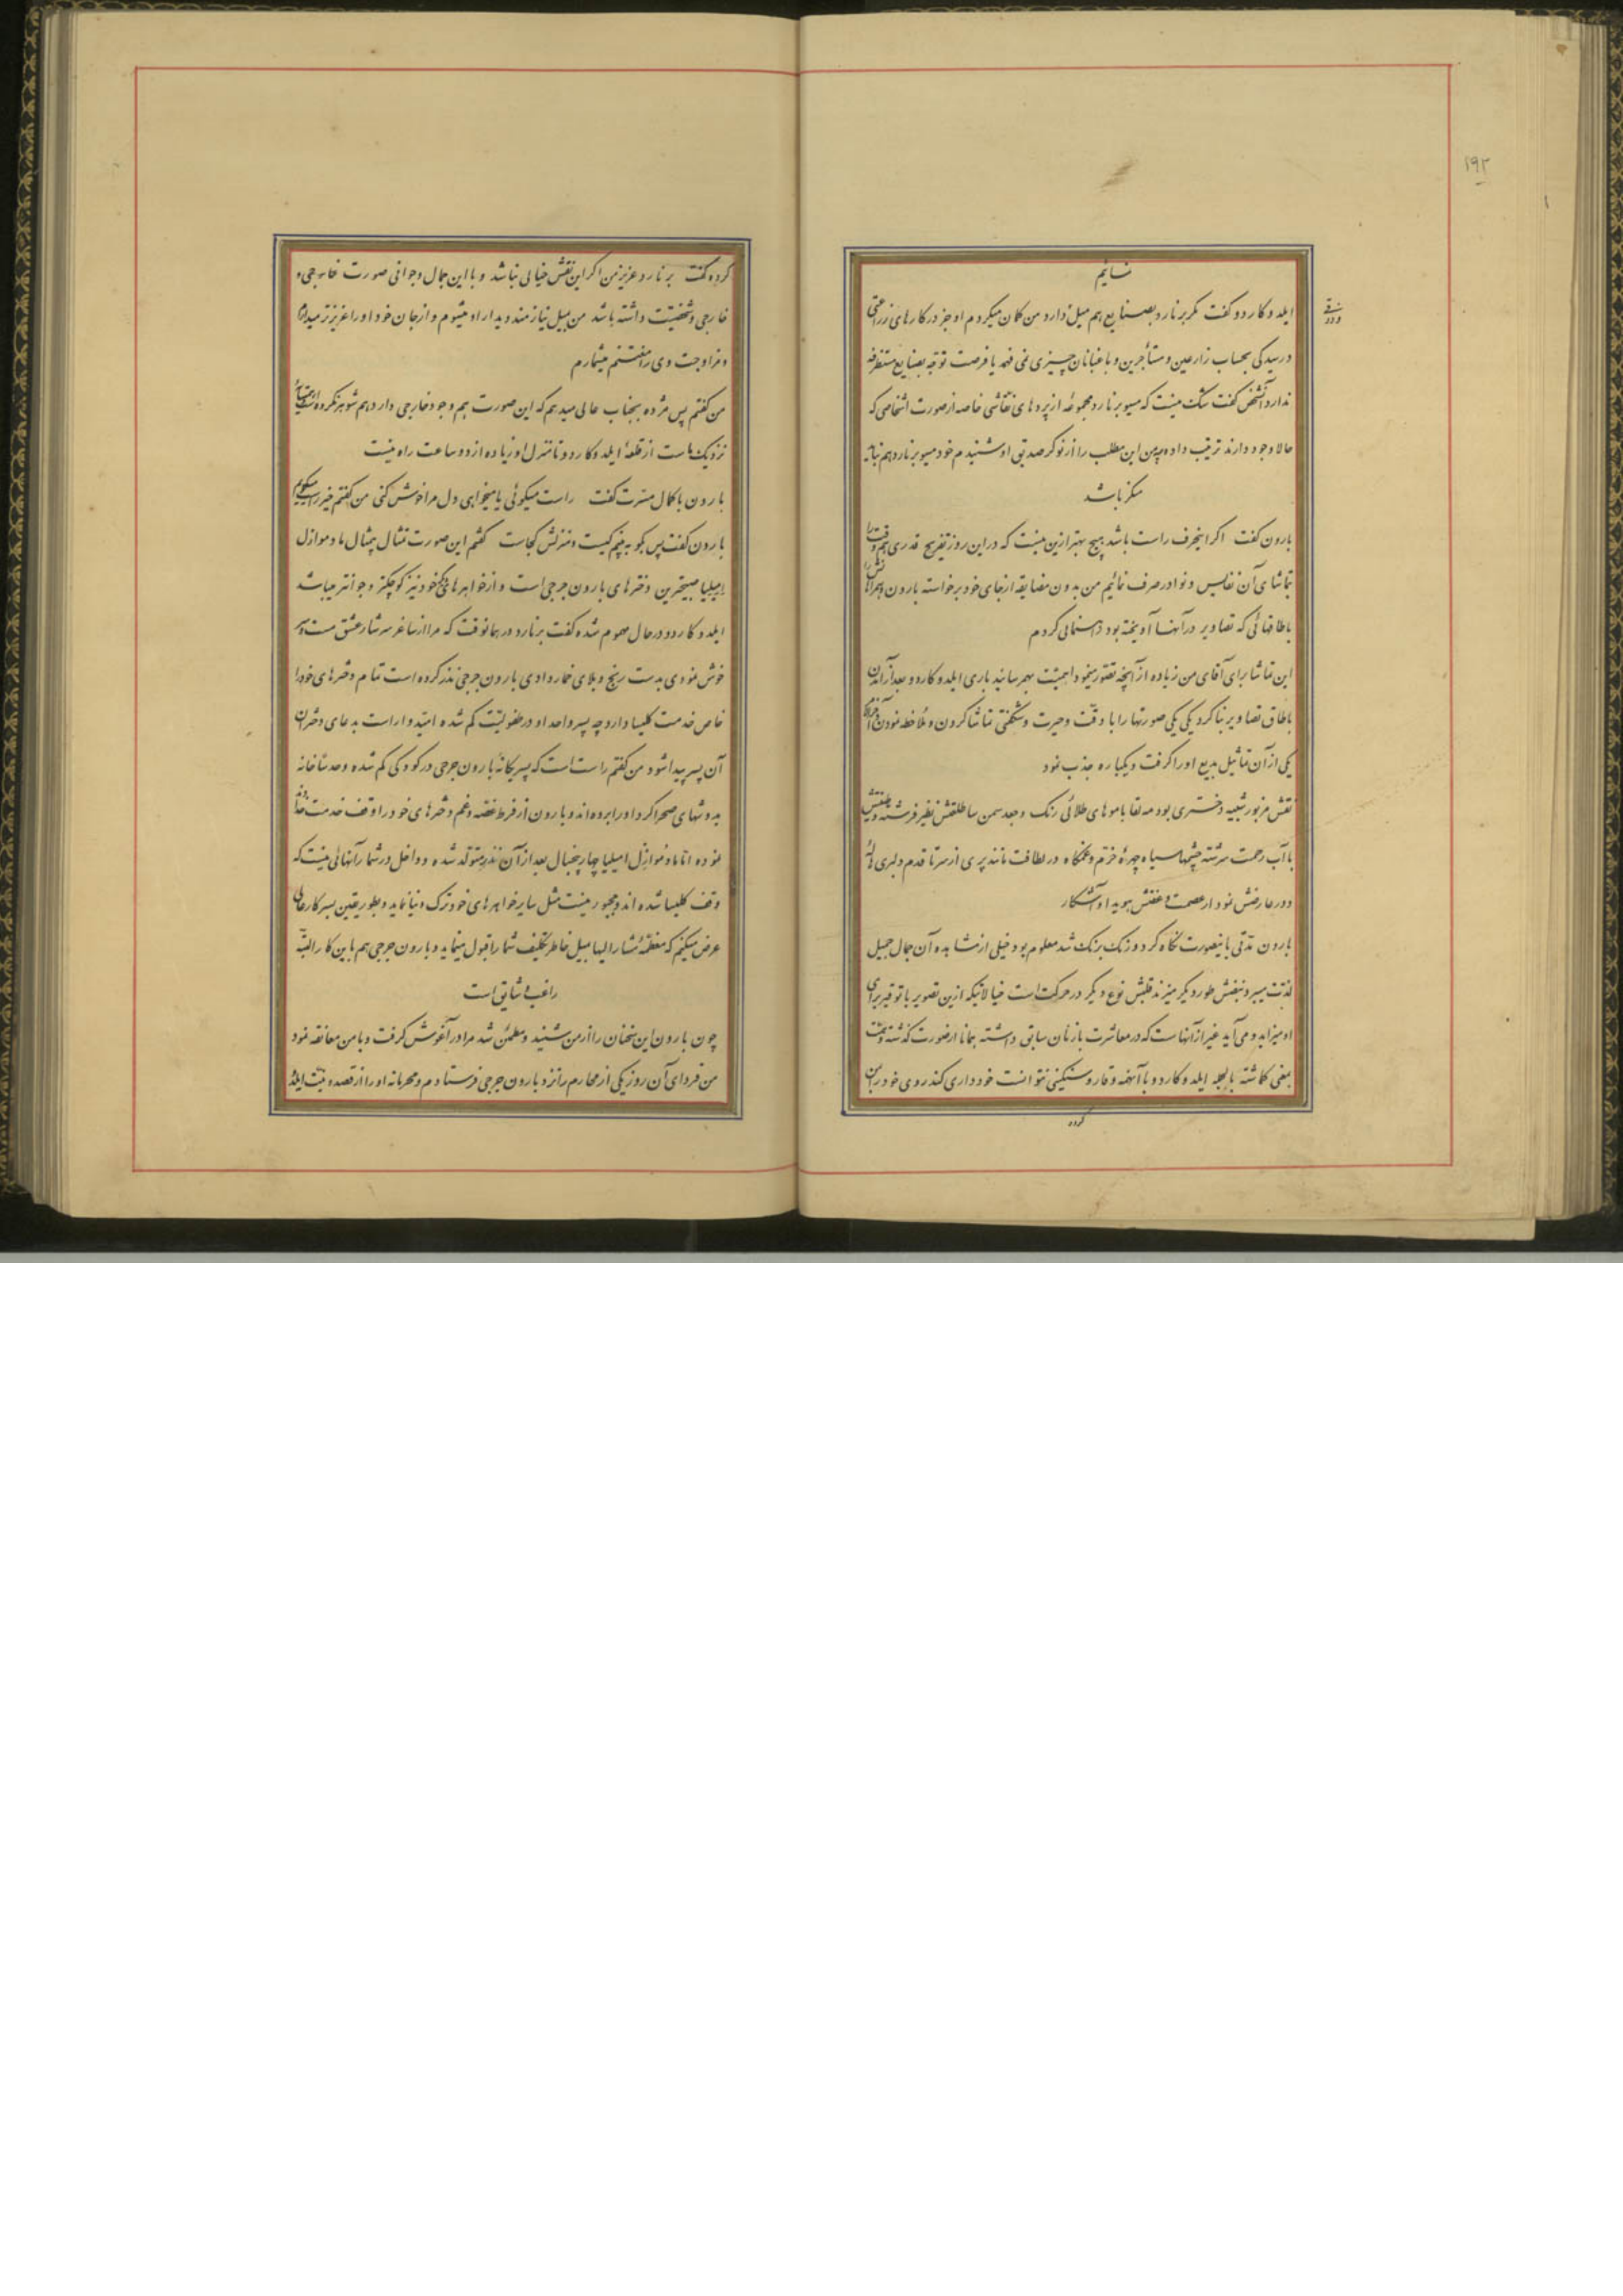 ۱۹۲
نمائیم
ایلد و کاردو گفت مگر برنارد بصنایع هم میل دارد من گمان میکردم او جز در کارهای زراعتی
و رسیدگی بحساب زارعین و مستأجرین و باغبانان چیزی نمی فهمد یا فرصت توجه بصنایع مستظرفه
ندارد آنشخص گفت شک نیست که مسیو برنارد مجموعهٔ از پرده های نقاشی خاصه از صورت اشخاصی که
حالا وجود دارند ترتیب داده و من این مطلب را از نوکر صدیق او شنیدم خود مسیو برنارد هم نباید
منکر باشد
بارون گفت اگر اینحرف راست باشد هیچ بهتر ازین نیست که در این روز تفریح قدری هم وقت را
بتماشای آن نفایس و نوادر صرف نمائیم من بدون مضایقه از جای خود برخواسته بارون و همراهانش را
باطاقهائی که تصاویر در آنها آویخته بود راهنمائی کردم
این تماشا برای آقای من زیاده از آنچه تصور مینمود اهمیت بهم رسانید باری ایلد و کاردو بعد از آمدن
باطاق تصاویر بنا کرد یکی یکی صورتها را با دقت و حیرت و شگفتی تماشا کردن و ملاحظه نمودن آخر
یکی از آن تماثیل بدیع او را گرفت و یکباره جذب نمود
نقش مزبور شبیه دختری بود مه لقا با موهای طلائی رنگ و جعد سمن سا طلعتش نظیر فرشته و طینتش
باآب رحمت سرشته چشمها سیاه چهرهٔ خرم و نگاه در لطافت مانند پری از سر تا قدم دلبری
و در عارضش نمودار عصمت و عفتش هویدا و آشکار
بارون مدتی باینصورت نگاه کرد و رنگ برنگ شد معلوم بود خیلی از مشاهده آن جمال جمیل
لذت میبرد نبضش طور دیگر میزند قلبش نوع دیگر در حرکت است خیالاتیکه ازین تصویر با توقیر برای
او میزاید و می آید غیر از آنهاست که در معاشرت با زنان سابق داشته همانا از صورت گذشته و همت
بمعنی گماشته بالجمله ایلد و کاردو با آنهمه وقار و سنگینی نتوانست خودداری کند روی خود را بمن
کرده
کرده گفت برنارد عزیز من اگر این نقش خیالی نباشد و با این جمال و جوانی صورت
خارجی و شخصیت داشته باشد من بمیل نیازمند دیدار او میشوم و از جان خود او را عزیزتر میدارم
و مزاوجت وی را مغتنم میشمارم
من گفتم پس مژده بجناب عالی میدهم که این صورت هم وجود خارجی دارد هم شوهر نکرده است
نزدیک ماست از قلعهٔ ایلد و کاردو تا منزل او زیاده از دو ساعت راه نیست
بارون با کمال مسرت گفت راست میگوئی یا میخواهی دل مرا خوش کنی من گفتم خیر راست میگویم
بارون گفت پس بگو ببینم کیست و منزلش کجاست گفتم این صورت تمثال بیمثال مادموازل
امیلیا صبیحترین دخترهای بارون جرجی است و از خواهرهای خود نیز کوچکتر و جوانتر میباشد
ایلد و کاردو در حال مهموم شده گفت برنارد در همانوقت که مرا از ساغر سرشار عشق مست و سر
خوش نمودی بدست رنج و بلای خمار دادی بارون جرجی نذر کرده است تمام دخترهای خود را
خاص خدمت کلیسا دارد چه پسر واحد او در طفولیت گم شده امیدوار است بدعای دختران
آن پسر پیدا شود من گفتم راست است که پسر یگانهٔ بارون جرجی در کودکی گم شده
بدوشهای صحراگرد او را برده اند و بارون از فرط غصه و غم دخترهای خود را وقف خدمت خدا
نموده اما مادموازل امیلیا چهار پنجسال بعد از آن نذر متولد شده و داخل در شمار آنهائی نیست که
وقف کلیسا شده اند و مجبور نیست مثل سایر خواهرهای خود ترک دنیا نماید و بطور یقین بسرکار عالی
عرض میکنم که معظمه مشارالیها بمیل خاطر تکلیف شما را قبول مینماید و بارون جرجی هم باین کار البته
راغب و شایق است
چون بارون این سخنان را از من شنید و مطمئن شد مرا در آغوش گرفت و با من معانقه نمود
من فردای آن روز یکی از محارم را نزد بارون جرجی فرستادم و محرمانه او را از قصد و نیت ایلد